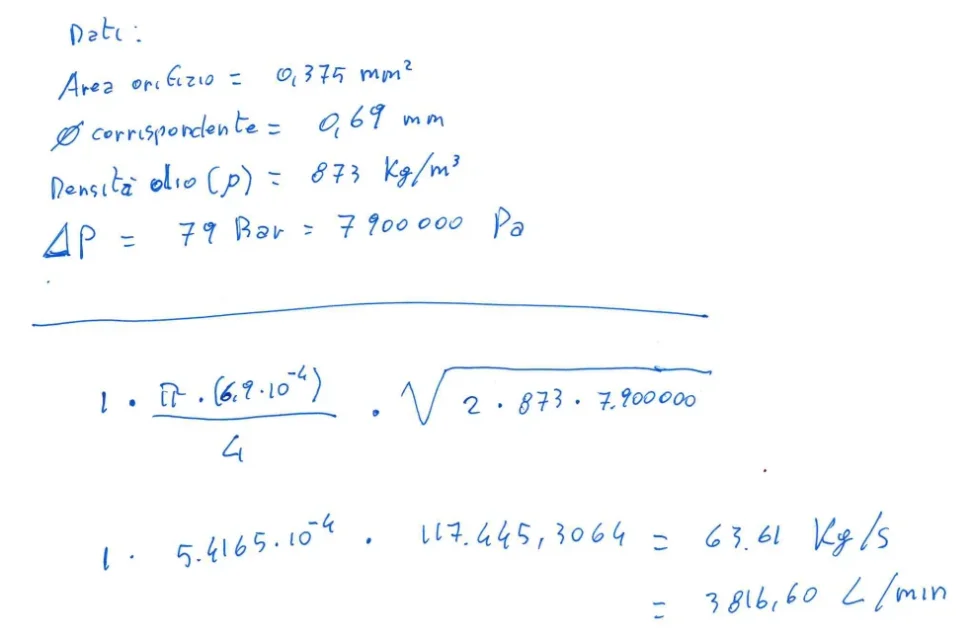 Dati:
Area orifizio = 0,375 mm²
Ø corrispondente = 0,69 mm
Densità olio (ρ) = 873 Kg/m³
ΔP = 79 Bar = 7900000 Pa
1 · π · (6,9·10⁻⁴) / 4 · √ 2 · 873 · 7.900000
1 · 5.4165·10⁻⁴ · 117.445,3064 = 63.61 Kg/s
= 3816,60 L/min